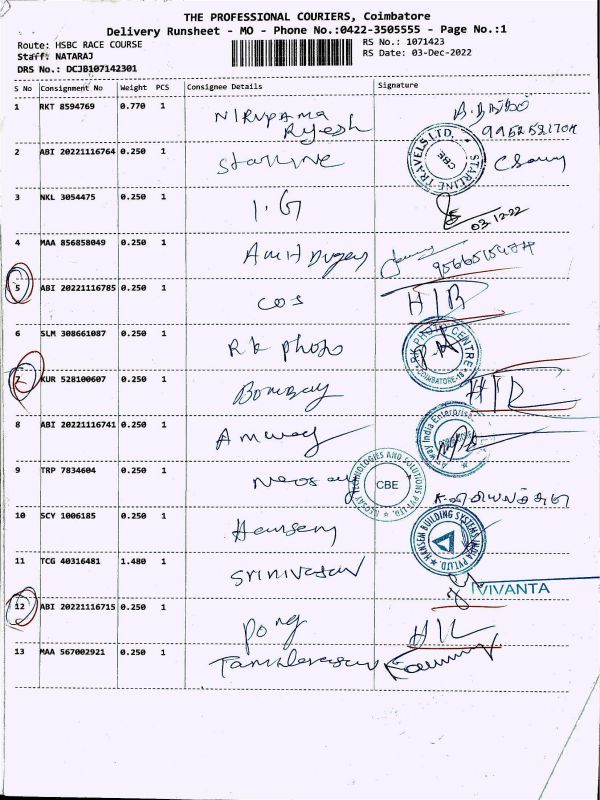 THE PROFESSIONAL COURIERS, Coimbatore
Delivery Runsheet - MO - Phone No.:0422-3505555 - Page No.:1
Route: HSBC RACE COURSE
RS No.: 1071423
Staff: NATARAJ
RS Date: 03-Dec-2022
DRS No.: DCJB107142301
S No Consignment No Weight PCS Consignee Details Signature
1 RKT 8594769 0.770 1 Nirupama
Rajesh
2 ABI 20221116764 0.250 1 Starline
STARLINE TRAVELS LTD. CBE
3 NKL 3054475 0.250 1 I.G
03-12-22
4 MAA 856858049 0.250 1 Amit
5 ABI 20221116785 0.250 1 COS
6 SLM 308661087 0.250 1 Rk photo
RK PHOTO CENTRE COIMBATORE-18
7 KUR 528100607 0.250 1 Bombay
8 ABI 20221116741 0.250 1 Amway
Amway India Enterprises
9 TRP 7834604 0.250 1
TECHNOLOGIES AND SOLUTIONS PVT. LTD. CBE
10 SCY 1006185 0.250 1 Hansen
HANSEN BUILDING SYSTEMS INDIA PVT.LTD.
11 TCG 40316481 1.480 1 Srinivasan
VIVANTA
12 ABI 20221116715 0.250 1 Pong
13 MAA 567002921 0.250 1 Tamilarasan